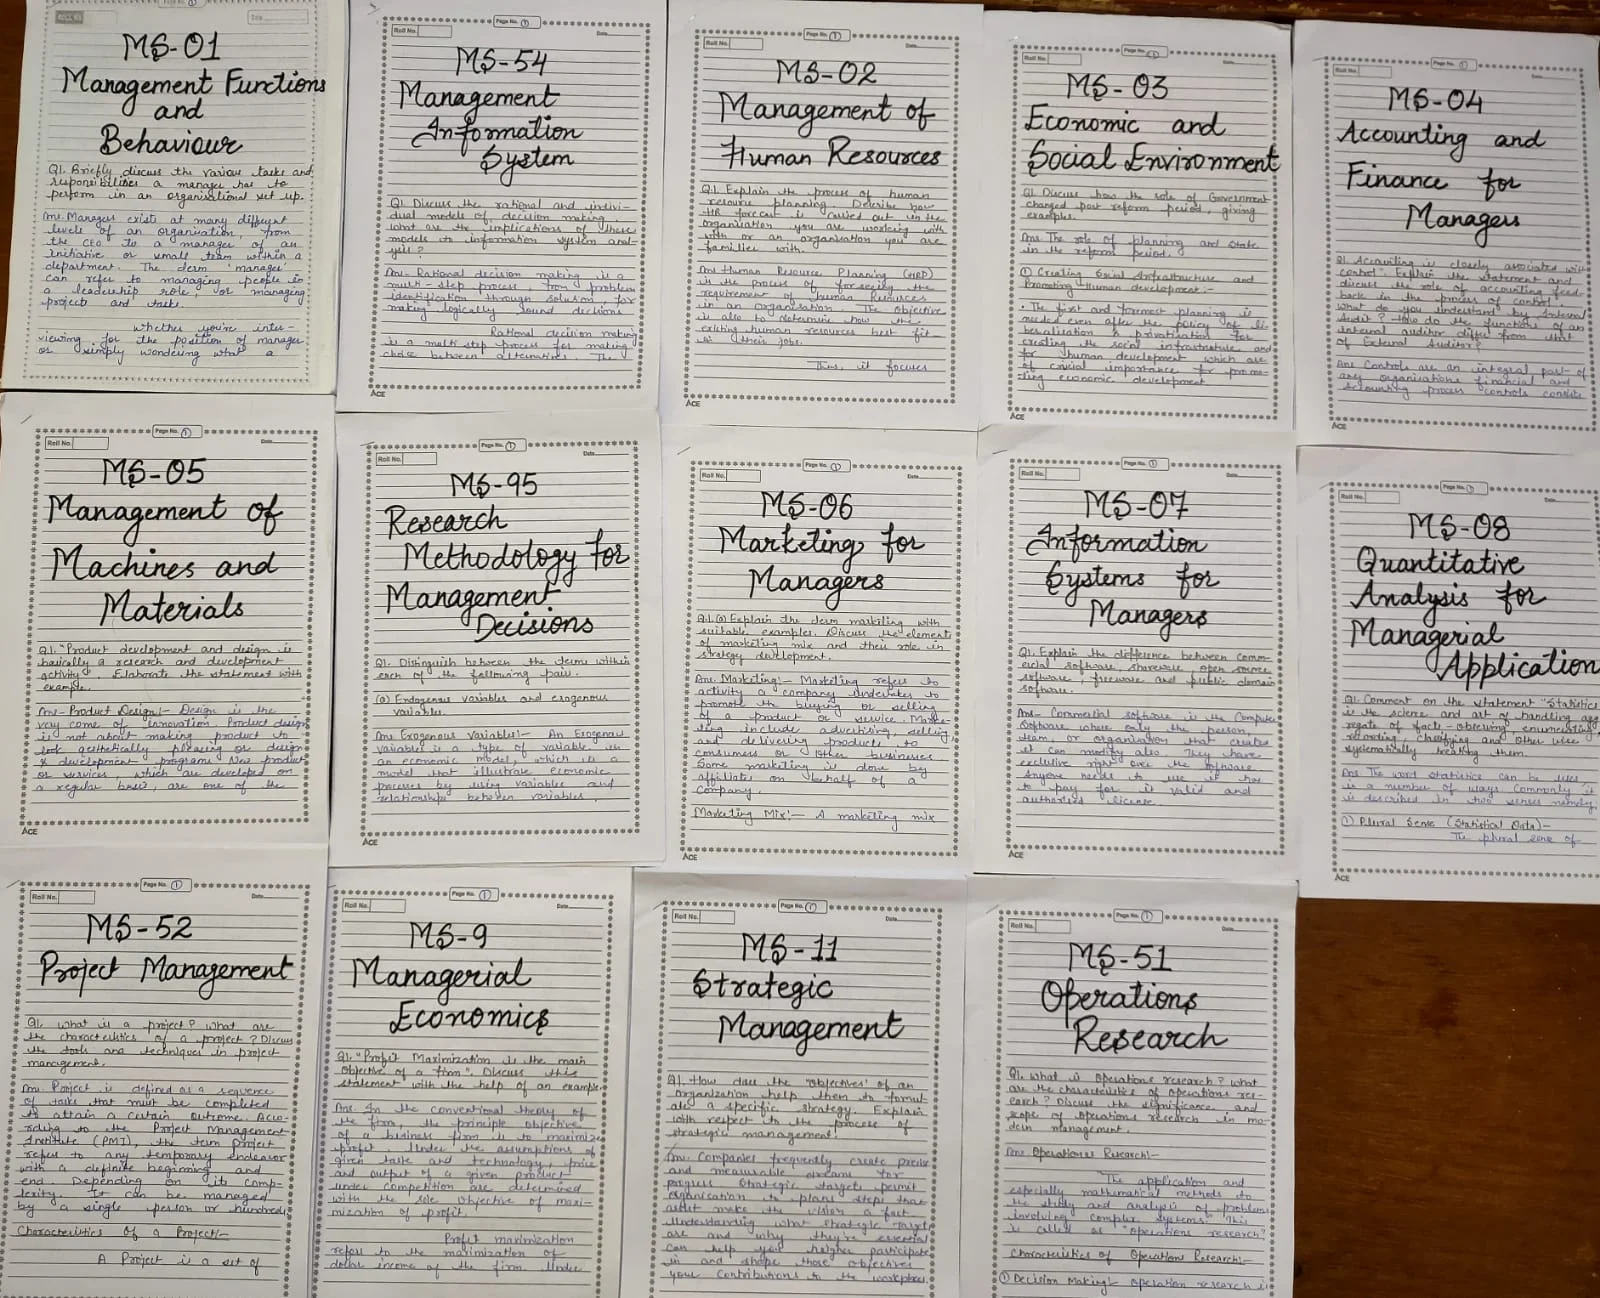 Page No. 1
Title
MS-01
Management Functions
and
Behaviour
Q1. Briefly discuss the various tasks and
responsibilities a manager has to
perform in an organisational set up.
Ans. Managers exists at many different
levels of an organisation, from
the CEO to a manager of an
initiative or small team within a
department. The term 'manager'
can refer to managing people in
a leadership role, or managing
projects and tasks.
Whether you're inter-
viewing for the position of manager
or simply wondering what a
Page No. 1
Roll No.
Date
MS-54
Management
Information
System
Q1. Discuss the rational and indivi-
dual models of decision making.
What are the implications of these
models to information system anal-
ysis?
Ans- Rational decision making is a
multi-step process, from problem
identification through solution, for
making logically sound decisions
Rational decision making
is a multi step process for making
choice between alternatives. The
ACE
Page No. 1
Roll No.
Date
MS-02
Management of
Human Resources
Q.1. Explain the process of human
resource planning. Describe how
HR forecast is carried out in the
organisation you are working with
with or an organisation you are
familier with.
Ans Human Resource Planning (HRP)
is the process of forseeing the
requirement of human Resources
in an organisation. The objective
is also to determine how the
existing human resources best fit
in their jobs.
Thus, it focuses
ACE
Page No. 1
Roll No.
Date
MS-03
Economic and
Social Environment
Q1. Discuss how the role of Government
changed post reform period, giving
examples.
Ans The role of planning and state
in the reform period.
① Creating Social Infrastructure and
Promoting Human development:-
• The first and foremost planning is
needed even after the policy of li-
beralisation & privatisation for
creating the social infrastructure and
for human development which are
of crucial importance for promo-
ting economic development.
ACE
Page No. 1
Roll No.
Date
MS-04
Accounting and
Finance for
Managers
Q1. Accounting is closely associated with
control". Explain the statement and
discuss the role of accounting feed-
back in the process of control.
What do you understand by Internal
Audit? How do the functions of an
internal auditor differ from that
of External Auditor?
Ans Controls are an integral part of
any organisations financial and
accounting process controls consists
ACE
Page No. 1
Roll No.
Date
MS-05
Management of
Machines and
Materials
Q.1. "Product development and design is
basically a research and development
activity". Elaborate the statement with
example.
Ans- Product Design:- Design is the
very come of innovation. Product design
is not about making product to
look aesthetically pleasing or design
& development program. New product
or services, which are developed on
a regular basis, are one of the
ACE
Page No. 1
Roll No.
Date
MS-95
Research
Methodology for
Management
Decisions
Q1. Distinguish between the terms within
each of the following pair.
(a) Endogenous variables and exogenous
variables.
Ans Exogenous Variables:- An Exogenous
variable is a type of variable in
an economic model, which is a
model that illustrate economic
process by using variables and
relationships between variables.
ACE
Page No. 1
Roll No.
Date
MS-06
Marketing for
Managers
Q.1.(a) Explain the term marketing with
suitable examples. Discuss the elements
of marketing mix and their role in
strategy development.
Ans. Marketing:- Marketing refers to
activity a company undertakes to
promote the buying or selling
of a product or service. Marke-
ting include advertising, selling
and delivering products to
consumers or other businesses.
Some marketing is done by
affiliates on behalf of a
company.
Marketing Mix:- A marketing mix
ACE
Page No. 1
Roll No.
Date
MS-07
Information
Systems for
Managers
Q1. Explain the difference between Comm-
ercial software, shareware, open source
software, freeware and public domain
software.
Ans- Commercial software is the Computer
Software where only the person,
team, or organisation that creates
it can modify also They have
exclusive right over the software
Anyone needs to use it has
to pay for it valid and
authorised license.
ACE
Page No. 1
Roll No.
Date
MS-08
Quantitative
Analysis for
Managerial
Application
Q1. Comment on the statement "Statistics
is the science and art of handling agg
regate of facts - observing, enumerating,
recording, classifying and other wise
systematically treating them.
Ans The word statistics can be used
in a number of ways. Commonly it
is described in two senses namely:
① Plural Sense (Statistical Data)-
The plural sense of
ACE
Page No. 1
Roll No.
Date
MS-52
Project Management
Q1. What is a project? What are
the characteristics of a project? Discuss
the tools and techniques in project
management.
Ans. Project is defined as a sequence
of tasks that must be completed
to attain a certain outcome. Acco-
rding to the Project Management
Institute (PMI), the term Project
refers to any temporary endeavor
with a definite beginning and
end. Depending on its comp-
lexity. It can be managed
by a single person or hundreds
Characteristics of a Project:-
A Project is a set of
Page No. 1
Roll No.
Date
MS-9
Managerial
Economics
Q1. "Profit Maximization is the main
objective of a firm". Discuss this
statement with the help of an example.
Ans. In the conventional theory of
the firm, the principle objective
of a business firm is to maximize
profit. Under the assumptions of
given taste and technology, price
and output of a given product
under competition are determined
with the sole objective of maxi-
mization of profit.
Profit maximization
refers to the maximization of
dollar income of the firm. Under
Page No. 1
Roll No.
Date
MS-11
Strategic
Management
Q1. How does the 'objectives' of an
organization help them to formul
ate a specific strategy. Explain
with respect to the process of
strategic management.
Ans. Companies frequently create precise
and measurable dreams for
progress Strategic targets permit
organisation to plans steps that
assist make the vision a fact.
Understanding what strategic targets
are and why they're essential
can help you heigher participate
in and shape those objectives
your contributions to the workplace.
Page No. 1
Roll No.
Date
MS-51
Operations
Research
Q1. What is Operations research? What
are the characteristics of operations res-
earch? Discuss the significance and
scope of operations research in mo-
dern management.
Ans. Operations Research:-
The application and
especially mathematical methods to
the study and analysis of problem
involving complex systems. "This
is called as "operations research?
Characteristics of Operations Research:-
① Decision Making:- Operation research is